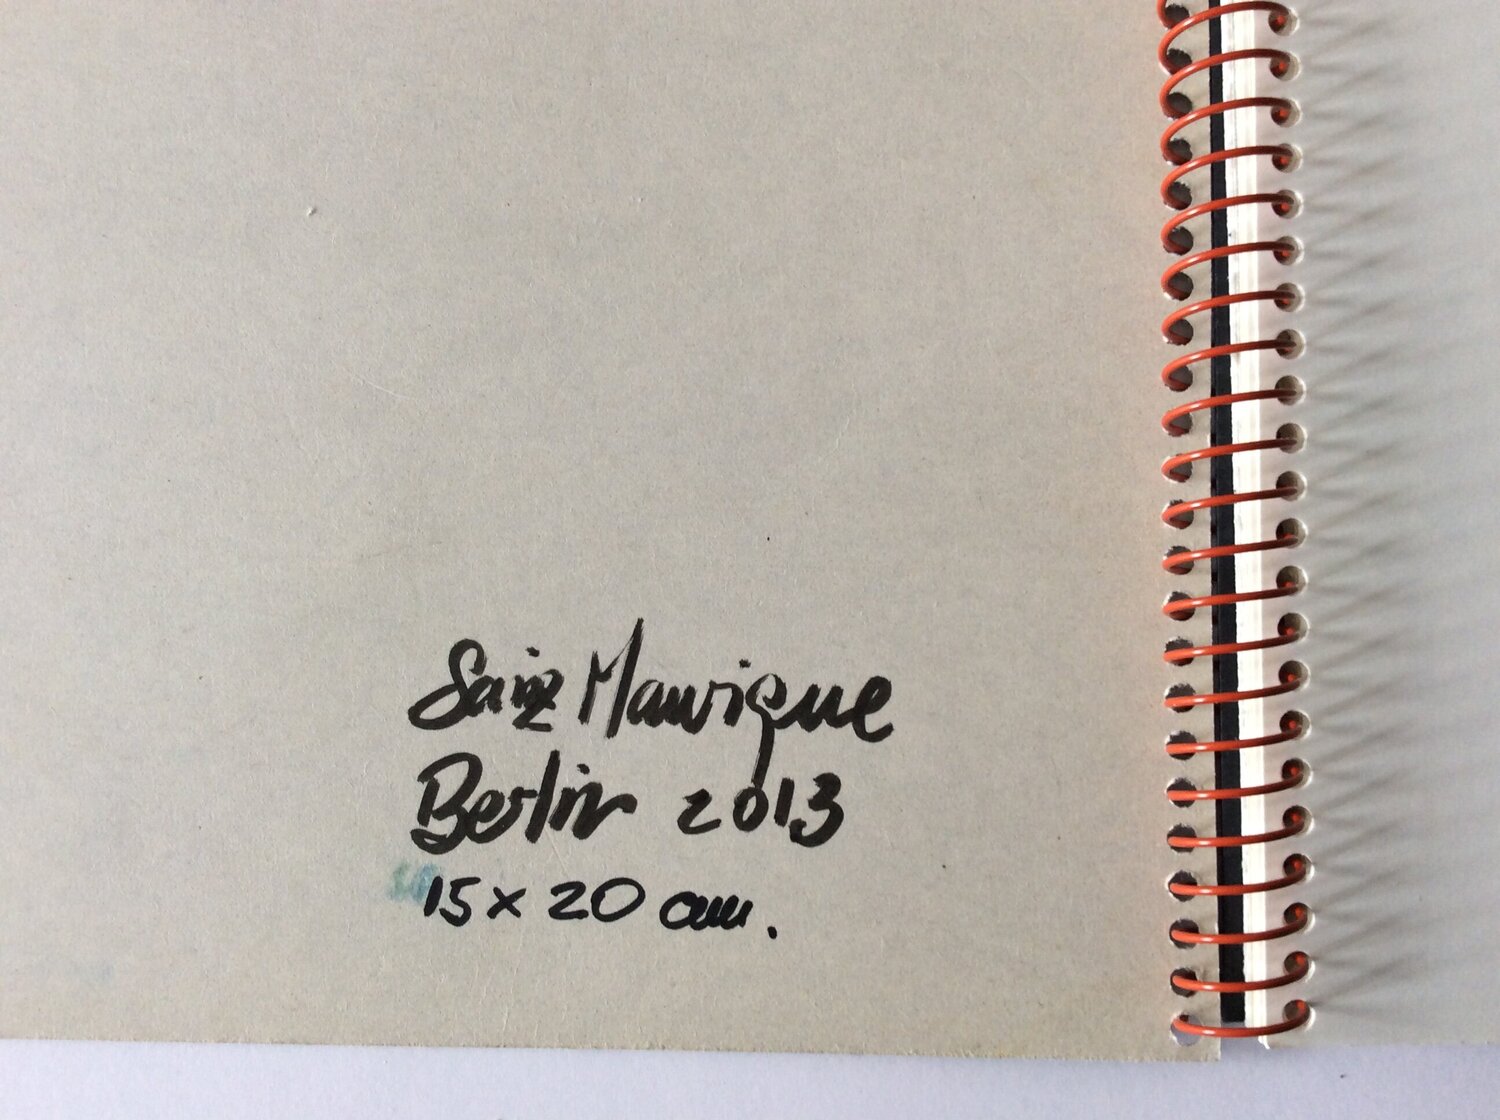 Sainz Manrique
Berlin 2013
15 x 20 cm.